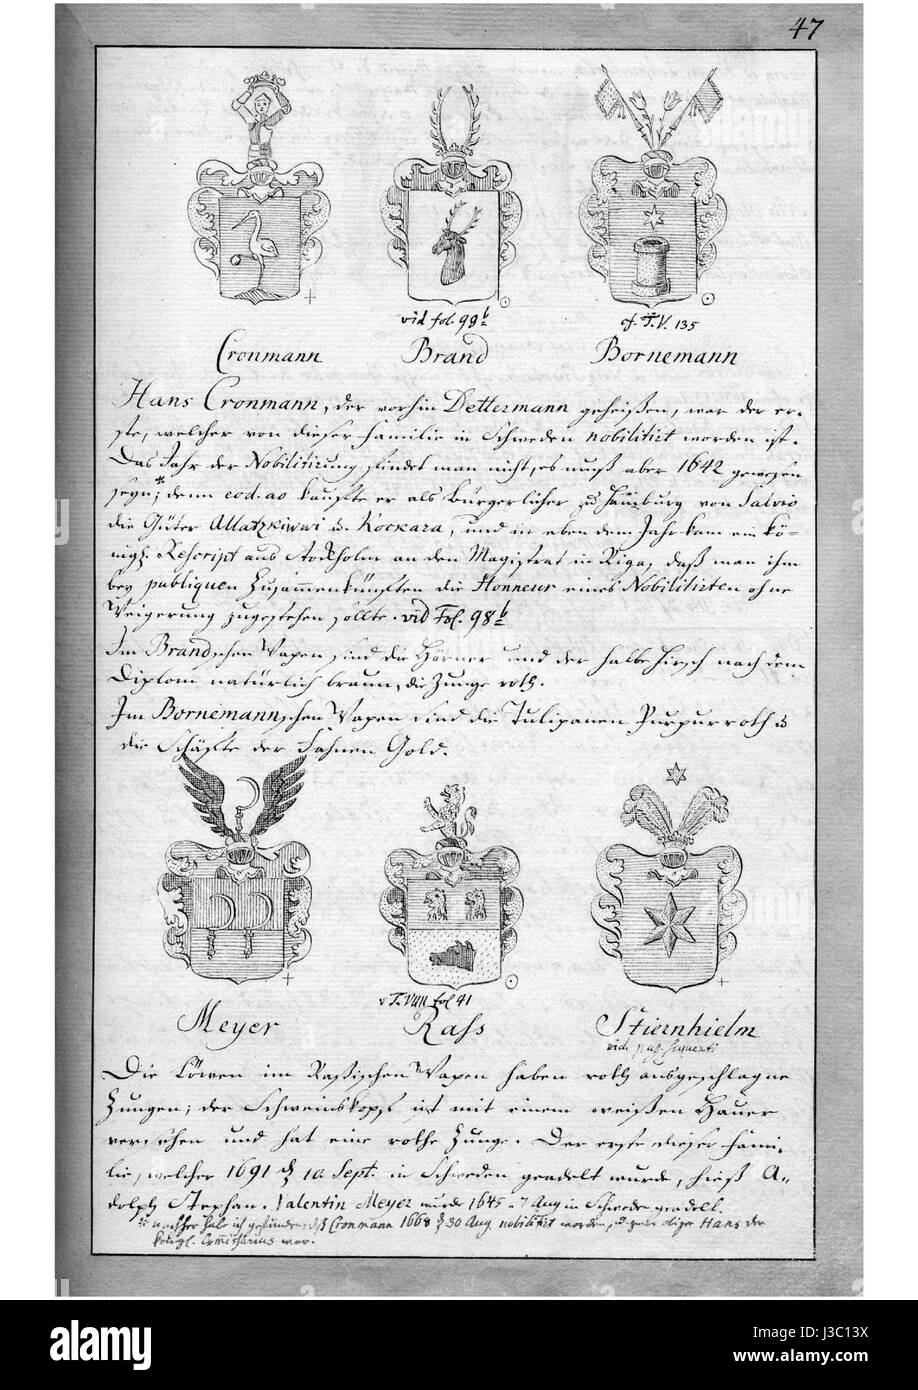 47
vid fol. 99b
cf. T.V. 135
Cronmann Brand Bornemann
Hans Cronmann, der vorhin Dettermann geheißen, war der er-
ste, welcher von dieser Familie in Schweden nobilitirt worden ist.
Das Jahr der Nobilitirung findet man nicht, es muß aber 1642 gewesen
seyn*; denn eod. ao kaufte er als Bürgerlicher zu Hamburg von Salvio
die Güter Allatzkiwwi u. Kockara, und in eben dem Jahr kam ein kö-
nigl. Rescript aus Stockholm an den Magistrat in Riga, daß man ihm
bey publiquen Zusammenkünften die Honneur eines Nobilitirten ohne
Weigerung zugestehen sollte. vid Fol. 98b
Im Brandschen Wapen sind die Hörner und der halbe Hirsch nach dem
Diplom natürlich braun, die Zunge roth.
Im Bornemannschen Wapen sind die Tulipanen Purpurroth u
die Schäfte der Fahnen Gold.
v T. VIII fol 41
Meyer Rass Stiernhielm
vide pag. sequenti
Die Löwen im Raßischen Wapen haben roth ausgeschlagne
Zungen; der Schweinskopf ist mit einem weißen Hauer
versehen und hat eine rothe Zunge. Der erste dieser Fami-
lie, welcher 1691 d 10 Sept. in Schweden geadelt wurde, hieß A-
dolph Stephan. Valentin Meyer wurde 1645 7 Aug in Schweden geadelt.
* nachher habe ich gefunden, daß Cronmann 1668 d 30 Aug nobilitirt worden, u. zwar dieser Hans der
königl. Commissarius war.
alamy
Image ID: J3C13X
www.alamy.com